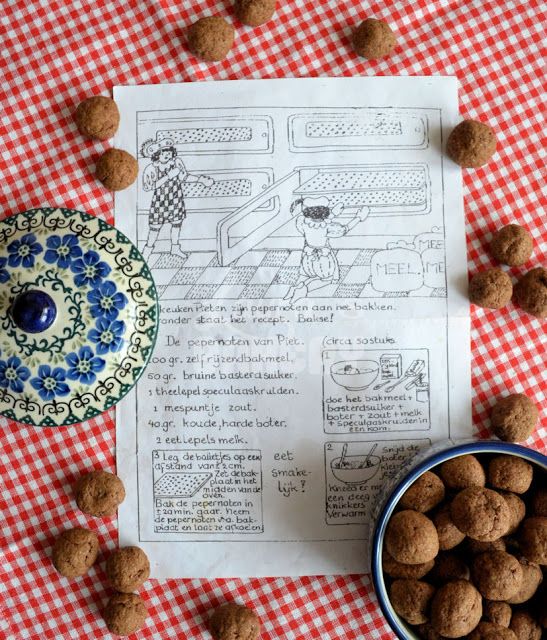 MEEL
MEEL
ME
keuken Pieten zijn pepernoten aan het bakken.
onder staat het recept. Bakse!
De pepernoten van Piet. (circa 50 stuks
00 gr. zelfrijzendbakmeel,
50 gr. bruine basterdsuiker.
1 theelepel speculaaskruiden.
1 mespuntje zout.
40 gr. koude, harde boter.
2 eetlepels melk.
1
doe het bakmeel +
basterdsuiker +
boter + zout + melk
+ speculaaskruiden in
een kom.
2
Snijd de
boter
klein
Kneed er
een deeg
knikkers
Verwarm
3 Leg de balletjes op een
afstand van ± 2 cm.
Zet de bak
plaat in het
midden van de
oven.
Bak de pepernoten in
± 20 min. gaar. Neem
de pepernoten v.d. bak-
plaat en laat ze afkoelen
eet
smake-
lijk!